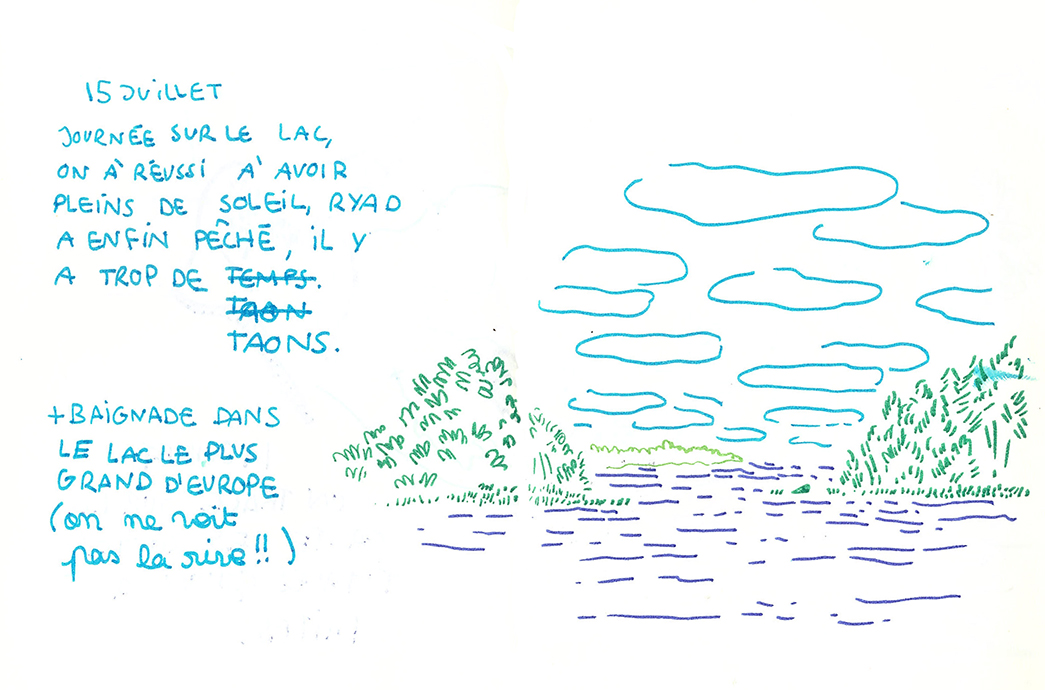 15 JUILLET
JOURNÉE SUR LE LAC,
ON À RÉUSSI À AVOIR
PLEINS DE SOLEIL, RYAD
A ENFIN PÊCHÉ, IL Y
A TROP DE TEMPS.
TAON
TAONS.
+ BAIGNADE DANS
LE LAC LE PLUS
GRAND D'EUROPE
(on ne voit
pas la rive!!)